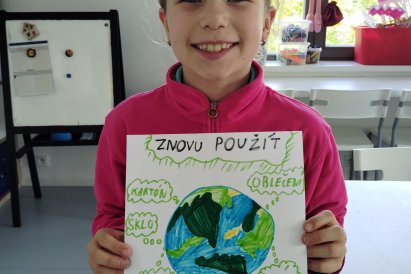 ZNOVU POUŽÍT
KARTÓN
OBLEČENÍ
SKLO